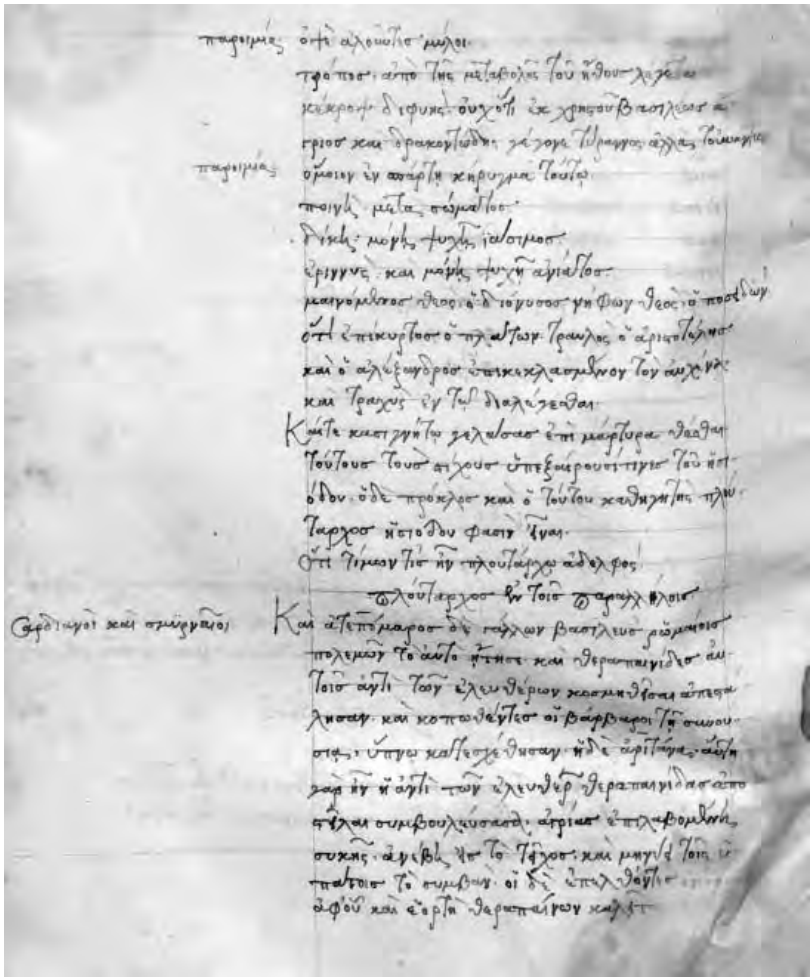 παροιμία ὀψὲ ἀλοῦντες μύλοι.
τρόπος. ἀπὸ τῆς μεταβολῆς τοῦ ἤθους λέγεται
κέκροψ διφυής. οὐχ ὅτι ἐκ χρηστοῦ βασιλέως ἄ
γριος καὶ δρακοντώδης γέγονε τύραννος ἀλλὰ τοὐναντίον
παροιμία ὅμοιον ἐν σπάρτῃ κήρυγμα τούτῳ
ποινὴ μετὰ σώματος.
δίκη. μόνης ψυχῆς ἰάσιμος.
ἐριννὺς καὶ μόνης ψυχῆ ἀνίατος
μαινόμενος θεος. ὁ διόνυσος νήφων θεὸς. ὁ ποσειδῶν
ὅτι ἐπίκυρτος ὁ πλάτων. τραυλὸς ὁ ἀριστοτέλης
καὶ ὁ ἀλέξανδρος ἐπικεκλασμένον τὸν αὐχένα
καὶ τραχὺς ἐν τῶ διαλέγεσθαι.
Καίτε κασιγνήτω γελάσας ἐπὶ μάρτυρα θέσθαι
τούτους τοὺς στίχους ὑπεξαίρουσί τινες τοῦ ἡσι
όδου. ὁ δὲ πρόκλος καὶ ὁ τούτου καθηγητὴς πλού
ταρχος ἡσιόδου φασὶν εἶναι.
Οτι τίμων τίς ἦν πλουτάρχω ἀδελφός
πλούταρχος ἐν τοῖς παραλλήλοις
Σαρδιανοὶ καὶ σμυρναῖοι Καὶ ἀτεπόμαρος δὲ γάλλων βασιλεὺς ρωμαίοις
πολεμῶν τὸ αὐτὸ ἤτησε καὶ θεραπαινίδες αὐ
τοῖς ἀντὶ τῶν ἐλευθέρων κοσμηθεῖσαι ἀπεστά
λησαν. καὶ κοπωθέντες οἱ βάρβαροι τῆ συνου
σία, ὕπνω κατεσχέθησαν. ἡ δὲ ἀρετάνα. αὕτη
γὰρ ἦν ἡ ἀντὶ τῶν ἐλευθέρ θεραπαινίδας ἀπο
στεῖλαι συμβουλεύσασα. ἀγρίας ἐπιλαβομένη
συκῆς. ἀνέβη εἰς τὸ τεῖχος. καὶ μηνύει τοῖς ὑ
πάτοις τὸ συμβάν. οἱ δὲ ἐπελθόντες
ἀφ' οὗ καὶ ἑορτὴ θεραπαίνων καλεῖτ